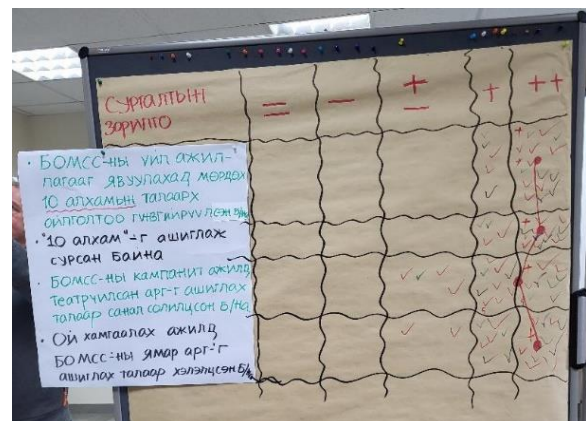 СУРГАЛТЫН
ЗОРИЛГО
= − ± + ++
• БОМСС-НЫ ҮЙЛ АЖИЛ-
ЛАГААГ ЯВУУЛАХАД МӨРДӨХ
10 АЛХАМЫН ТАЛААРХ
ОЙЛГОЛТОО ГҮНЗГИЙРҮҮЛСЭН Б/НА
• "10 АЛХАМ"-Г АШИГЛАЖ
СУРСАН БАЙНА
• БОМСС-НЫ КАМПАНИТ АЖИЛД
ТЕАТРЧИЛСАН АРГ-Г АШИГЛАХ
ТАЛААР САНАЛ СОЛИЛЦСОН Б/НА
• ОЙ ХАМГААЛАХ АЖИЛД
БОМСС-НЫ ЯМАР АРГ-Г
АШИГЛАХ ТАЛААР ХЭЛЭЛЦСЭН Б/НА